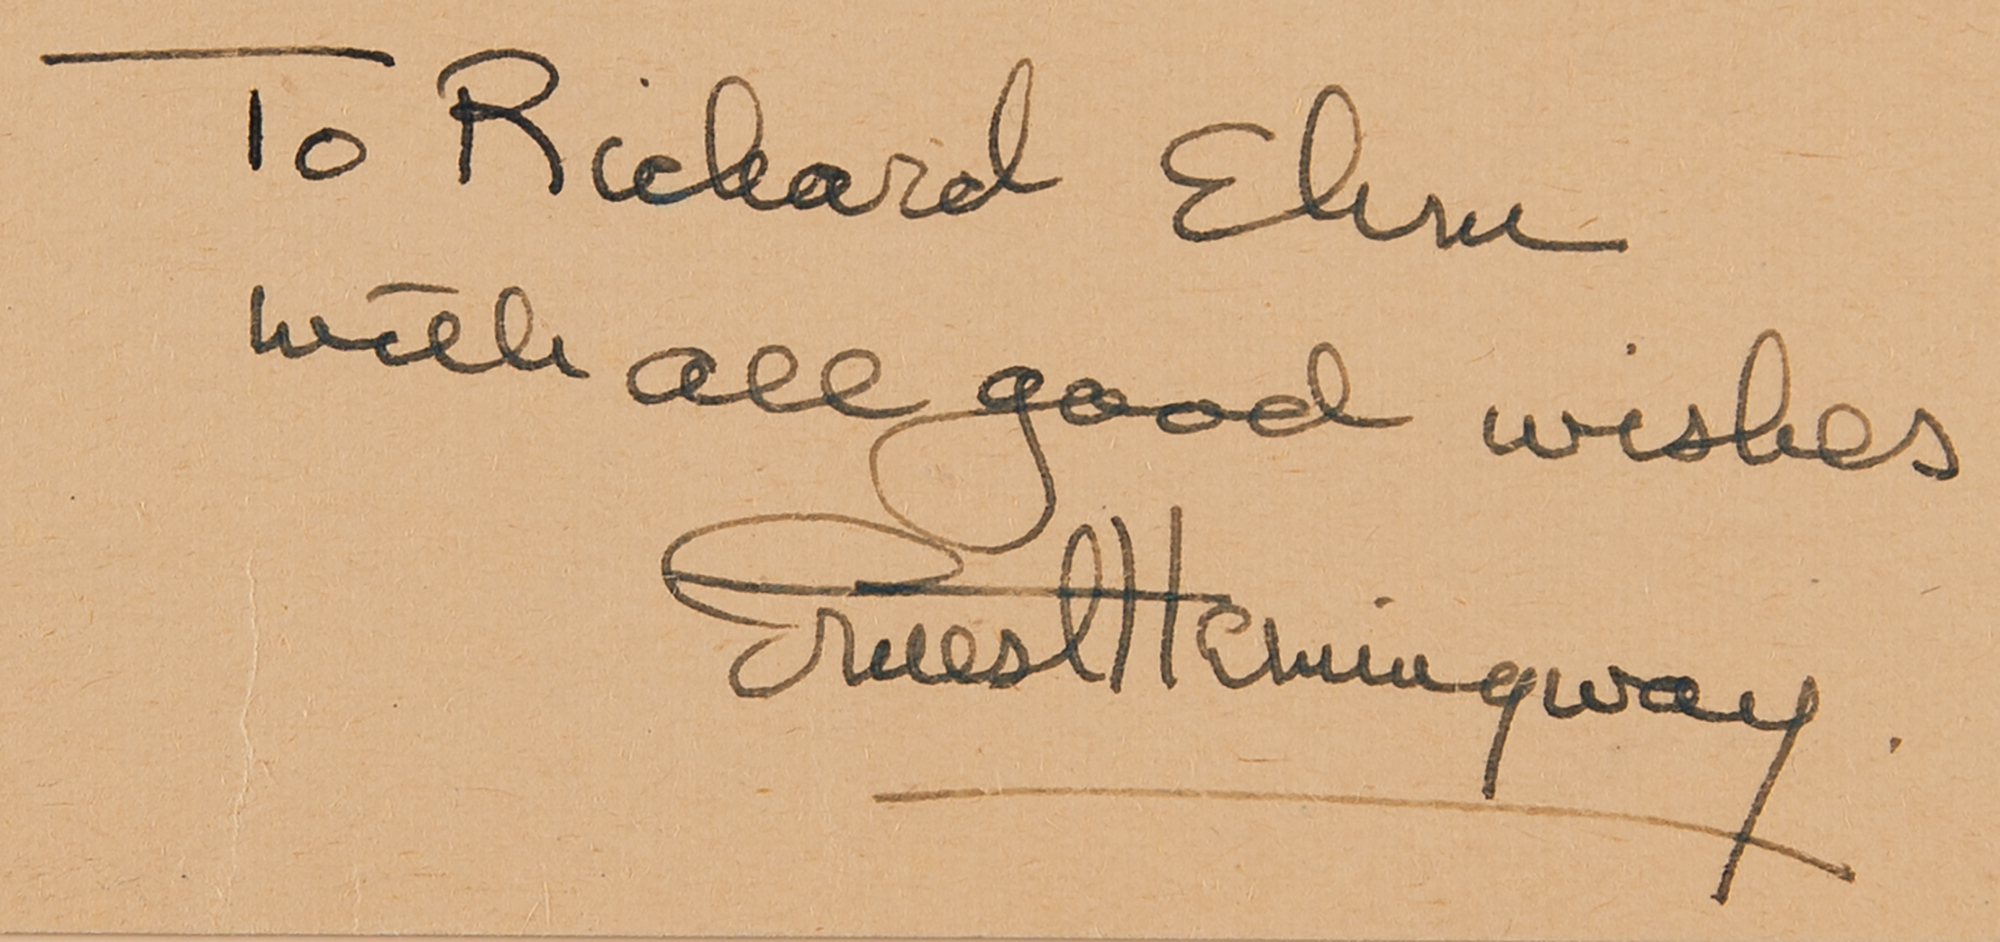 To Richard
with all good wishes
Ernest Hemingway.